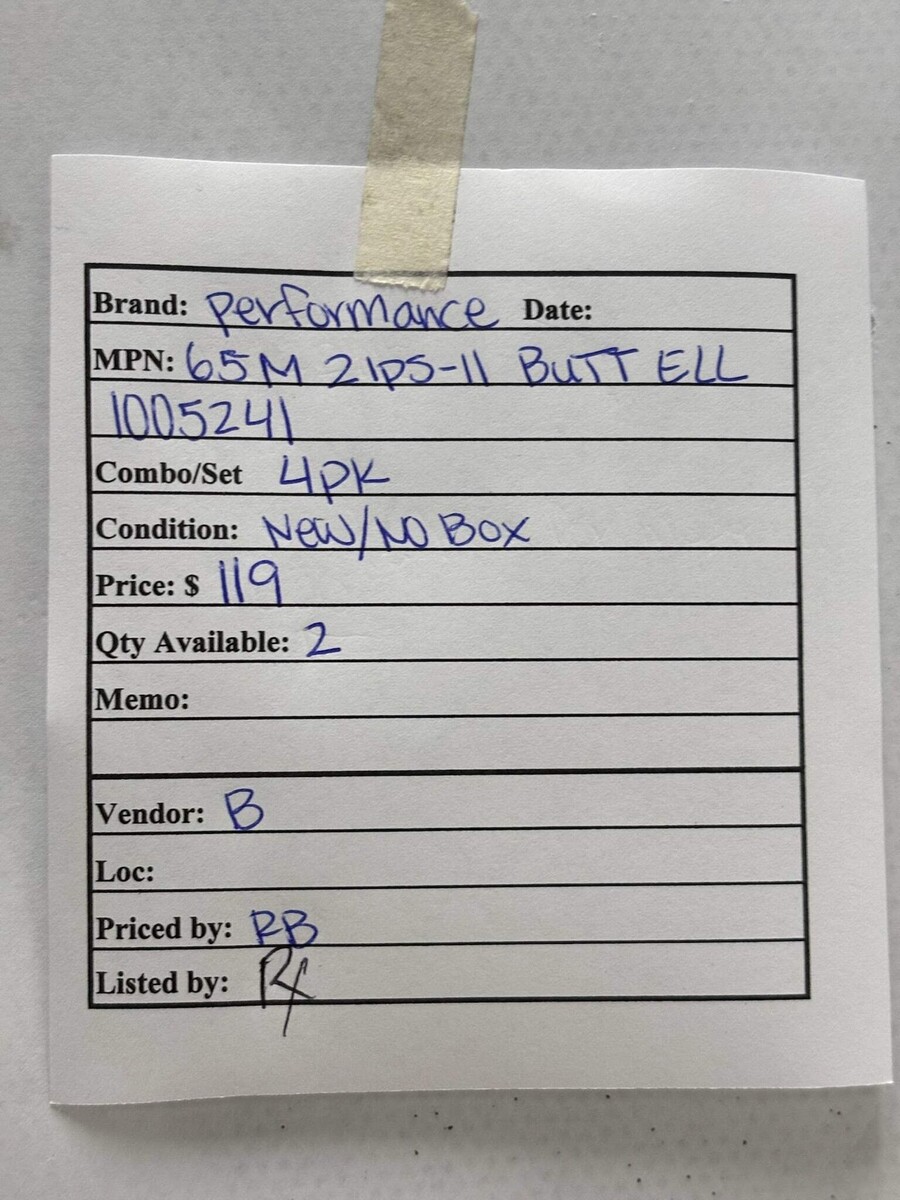 Brand: Performance Date:
MPN: 65M 21PS-11 BUTT ELL
1005241
Combo/Set 4PK
Condition: New/No Box
Price: $ 119
Qty Available: 2
Memo:
Vendor: B
Loc:
Priced by: RB
Listed by: